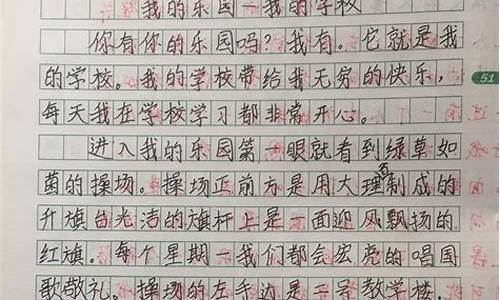 我的乐园—我的学校
你有你的乐园吗？我有。它就是我
的学校。我的学校带给我无穷的快乐，
每天我在学校学习都非常开心。
51
进入我的乐园第一眼就看到绿草如
茵的操场；操场正前方是用大理石制成的
升旗台光洁的旗杆上是一面迎风飘扬的
红旗。每个星期一我们都会宏亮的唱国
歌敬礼。操场的左手边是二号教学楼，